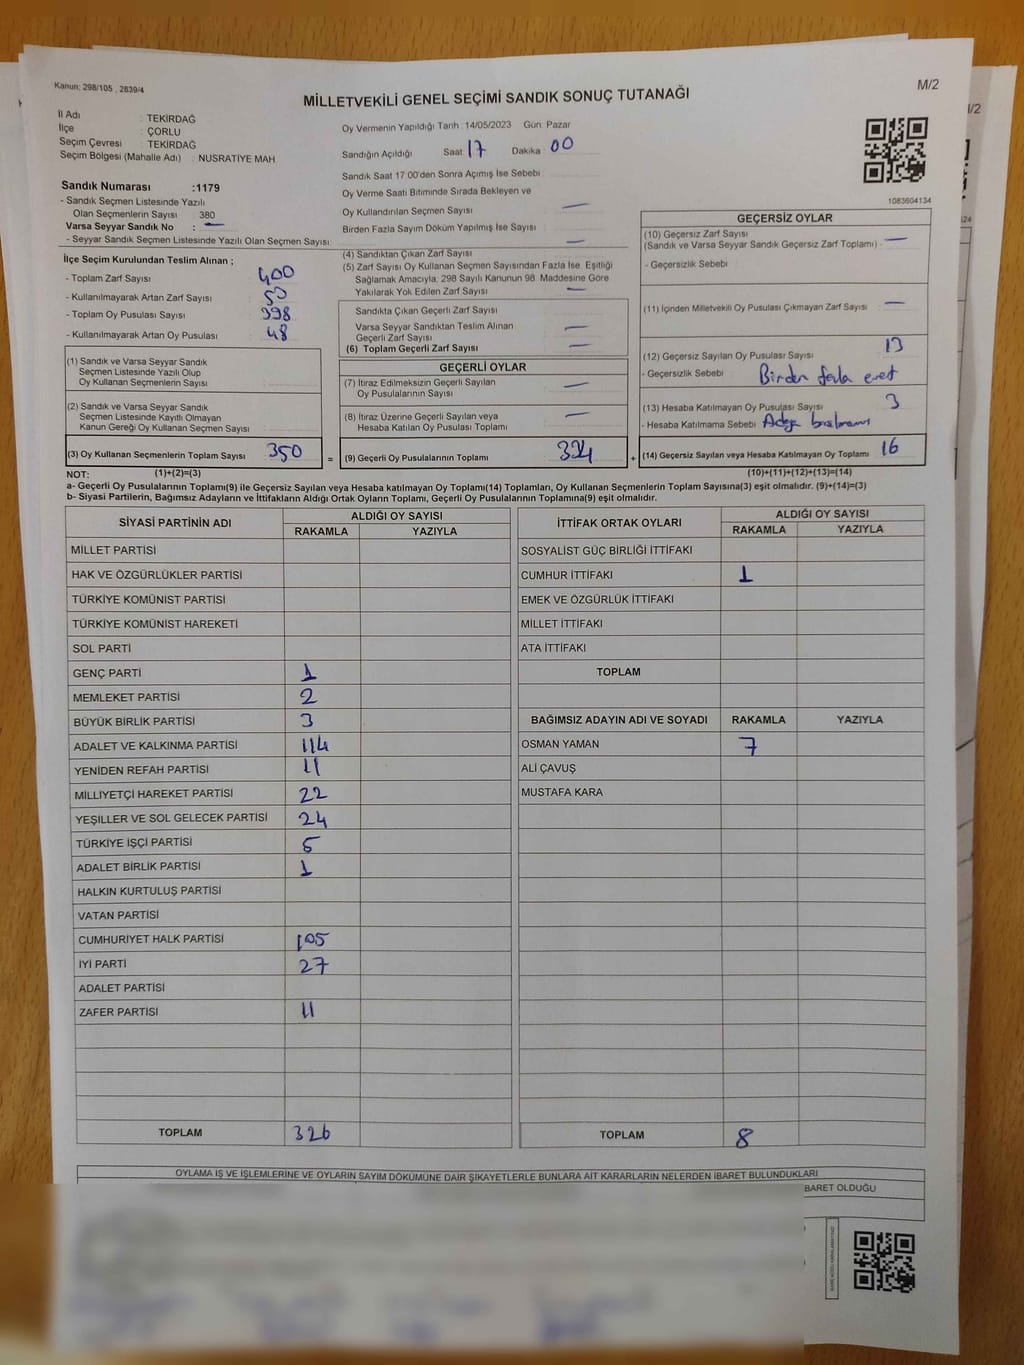 Kanun: 298/105 , 2839/4
M/2
MİLLETVEKİLİ GENEL SEÇİMİ SANDIK SONUÇ TUTANAĞI
İl Adı : TEKİRDAĞ
İlçe : ÇORLU
Seçim Çevresi : TEKİRDAĞ
Seçim Bölgesi (Mahalle Adı) : NUSRATİYE MAH.
Sandık Numarası :1179
- Sandık Seçmen Listesinde Yazılı
Olan Seçmenlerin Sayısı : 380
Varsa Seyyar Sandık No : —
- Seyyar Sandık Seçmen Listesinde Yazılı Olan Seçmen Sayısı:
Oy Vermenin Yapıldığı Tarih : 14/05/2023 Gün: Pazar
Sandığın Açıldığı Saat 17 Dakika 00
Sandık Saat 17:00'den Sonra Açımış İse Sebebi
Oy Verme Saati Bitiminde Sırada Bekleyen ve
Oy Kullandırılan Seçmen Sayısı —
Birden Fazla Sayım Döküm Yapılmış İse Sayısı —
1083604134
İlçe Seçim Kurulundan Teslim Alınan ;
- Toplam Zarf Sayısı 400
- Kullanılmayarak Artan Zarf Sayısı 50
- Toplam Oy Pusulası Sayısı 398
- Kullanılmayarak Artan Oy Pusulası 48
(1) Sandık ve Varsa Seyyar Sandık
Seçmen Listesinde Yazılı Olup
Oy Kullanan Seçmenlerin Sayısı
(2) Sandık ve Varsa Seyyar Sandık
Seçmen Listesinde Kayıtlı Olmayan
Kanun Gereği Oy Kullanan Seçmen Sayısı
(3) Oy Kullanan Seçmenlerin Toplam Sayısı 350 =
(4) Sandıktan Çıkan Zarf Sayısı
(5) Zarf Sayısı Oy Kullanan Seçmen Sayısından Fazla İse, Eşitliği
Sağlamak Amacıyla, 298 Sayılı Kanunun 98. Maddesine Göre
Yakılarak Yok Edilen Zarf Sayısı —
Sandıkta Çıkan Geçerli Zarf Sayısı
Varsa Seyyar Sandıktan Teslim Alınan
Geçerli Zarf Sayısı —
(6) Toplam Geçerli Zarf Sayısı —
GEÇERLİ OYLAR
(7) İtiraz Edilmeksizin Geçerli Sayılan
Oy Pusulalarının Sayısı —
(8) İtiraz Üzerine Geçerli Sayılan veya
Hesaba Katılan Oy Pusulası Toplamı —
(9) Geçerli Oy Pusulalarının Toplamı 334 +
GEÇERSİZ OYLAR
(10) Geçersiz Zarf Sayısı
(Sandık ve Varsa Seyyar Sandık Geçersiz Zarf Toplamı) —
- Geçersizlik Sebebi :
(11) İçinden Milletvekili Oy Pusulası Çıkmayan Zarf Sayısı —
(12) Geçersiz Sayılan Oy Pusulası Sayısı 13
- Geçersizlik Sebebi : Birden fazla evet
(13) Hesaba Katılmayan Oy Pusulası Sayısı 3
- Hesaba Katılmama Sebebi
(14) Geçersiz Sayılan veya Hesaba Katılmayan Oy Toplamı 16
NOT: (1)+(2)=(3)
(10)+(11)+(12)+(13)=(14)
a- Geçerli Oy Pusulalarının Toplamı(9) ile Geçersiz Sayılan veya Hesaba katılmayan Oy Toplamı(14) Toplamları, Oy Kullanan Seçmenlerin Toplam Sayısına(3) eşit olmalıdır. (9)+(14)=(3)
b- Siyasi Partilerin, Bağımsız Adayların ve İttifakların Aldığı Ortak Oyların Toplamı, Geçerli Oy Pusulalarının Toplamına(9) eşit olmalıdır.
SİYASİ PARTİNİN ADI ALDIĞI OY SAYISI
RAKAMLA YAZIYLA
MİLLET PARTİSİ
HAK VE ÖZGÜRLÜKLER PARTİSİ
TÜRKİYE KOMÜNİST PARTİSİ
TÜRKİYE KOMÜNİST HAREKETİ
SOL PARTİ
GENÇ PARTİ 1
MEMLEKET PARTİSİ 2
BÜYÜK BİRLİK PARTİSİ 3
ADALET VE KALKINMA PARTİSİ 114
YENİDEN REFAH PARTİSİ 11
MİLLİYETÇİ HAREKET PARTİSİ 22
YEŞİLLER VE SOL GELECEK PARTİSİ 24
TÜRKİYE İŞÇİ PARTİSİ 5
ADALET BİRLİK PARTİSİ 1
HALKIN KURTULUŞ PARTİSİ
VATAN PARTİSİ
CUMHURİYET HALK PARTİSİ 105
İYİ PARTİ 27
ADALET PARTİSİ
ZAFER PARTİSİ 11
TOPLAM 326
İTTİFAK ORTAK OYLARI ALDIĞI OY SAYISI
RAKAMLA YAZIYLA
SOSYALİST GÜÇ BİRLİĞİ İTTİFAKI
CUMHUR İTTİFAKI 1
EMEK VE ÖZGÜRLÜK İTTİFAKI
MİLLET İTTİFAKI
ATA İTTİFAKI
TOPLAM
BAĞIMSIZ ADAYIN ADI VE SOYADI RAKAMLA YAZIYLA
OSMAN YAMAN 7
ALİ ÇAVUŞ
MUSTAFA KARA
TOPLAM 8
OYLAMA İŞ VE İŞLEMLERİNE VE OYLARIN SAYIM DÖKÜMÜNE DAİR ŞİKAYETLERLE BUNLARA AİT KARARLARIN NELERDEN İBARET BULUNDUKLARI
BARET OLDUĞU